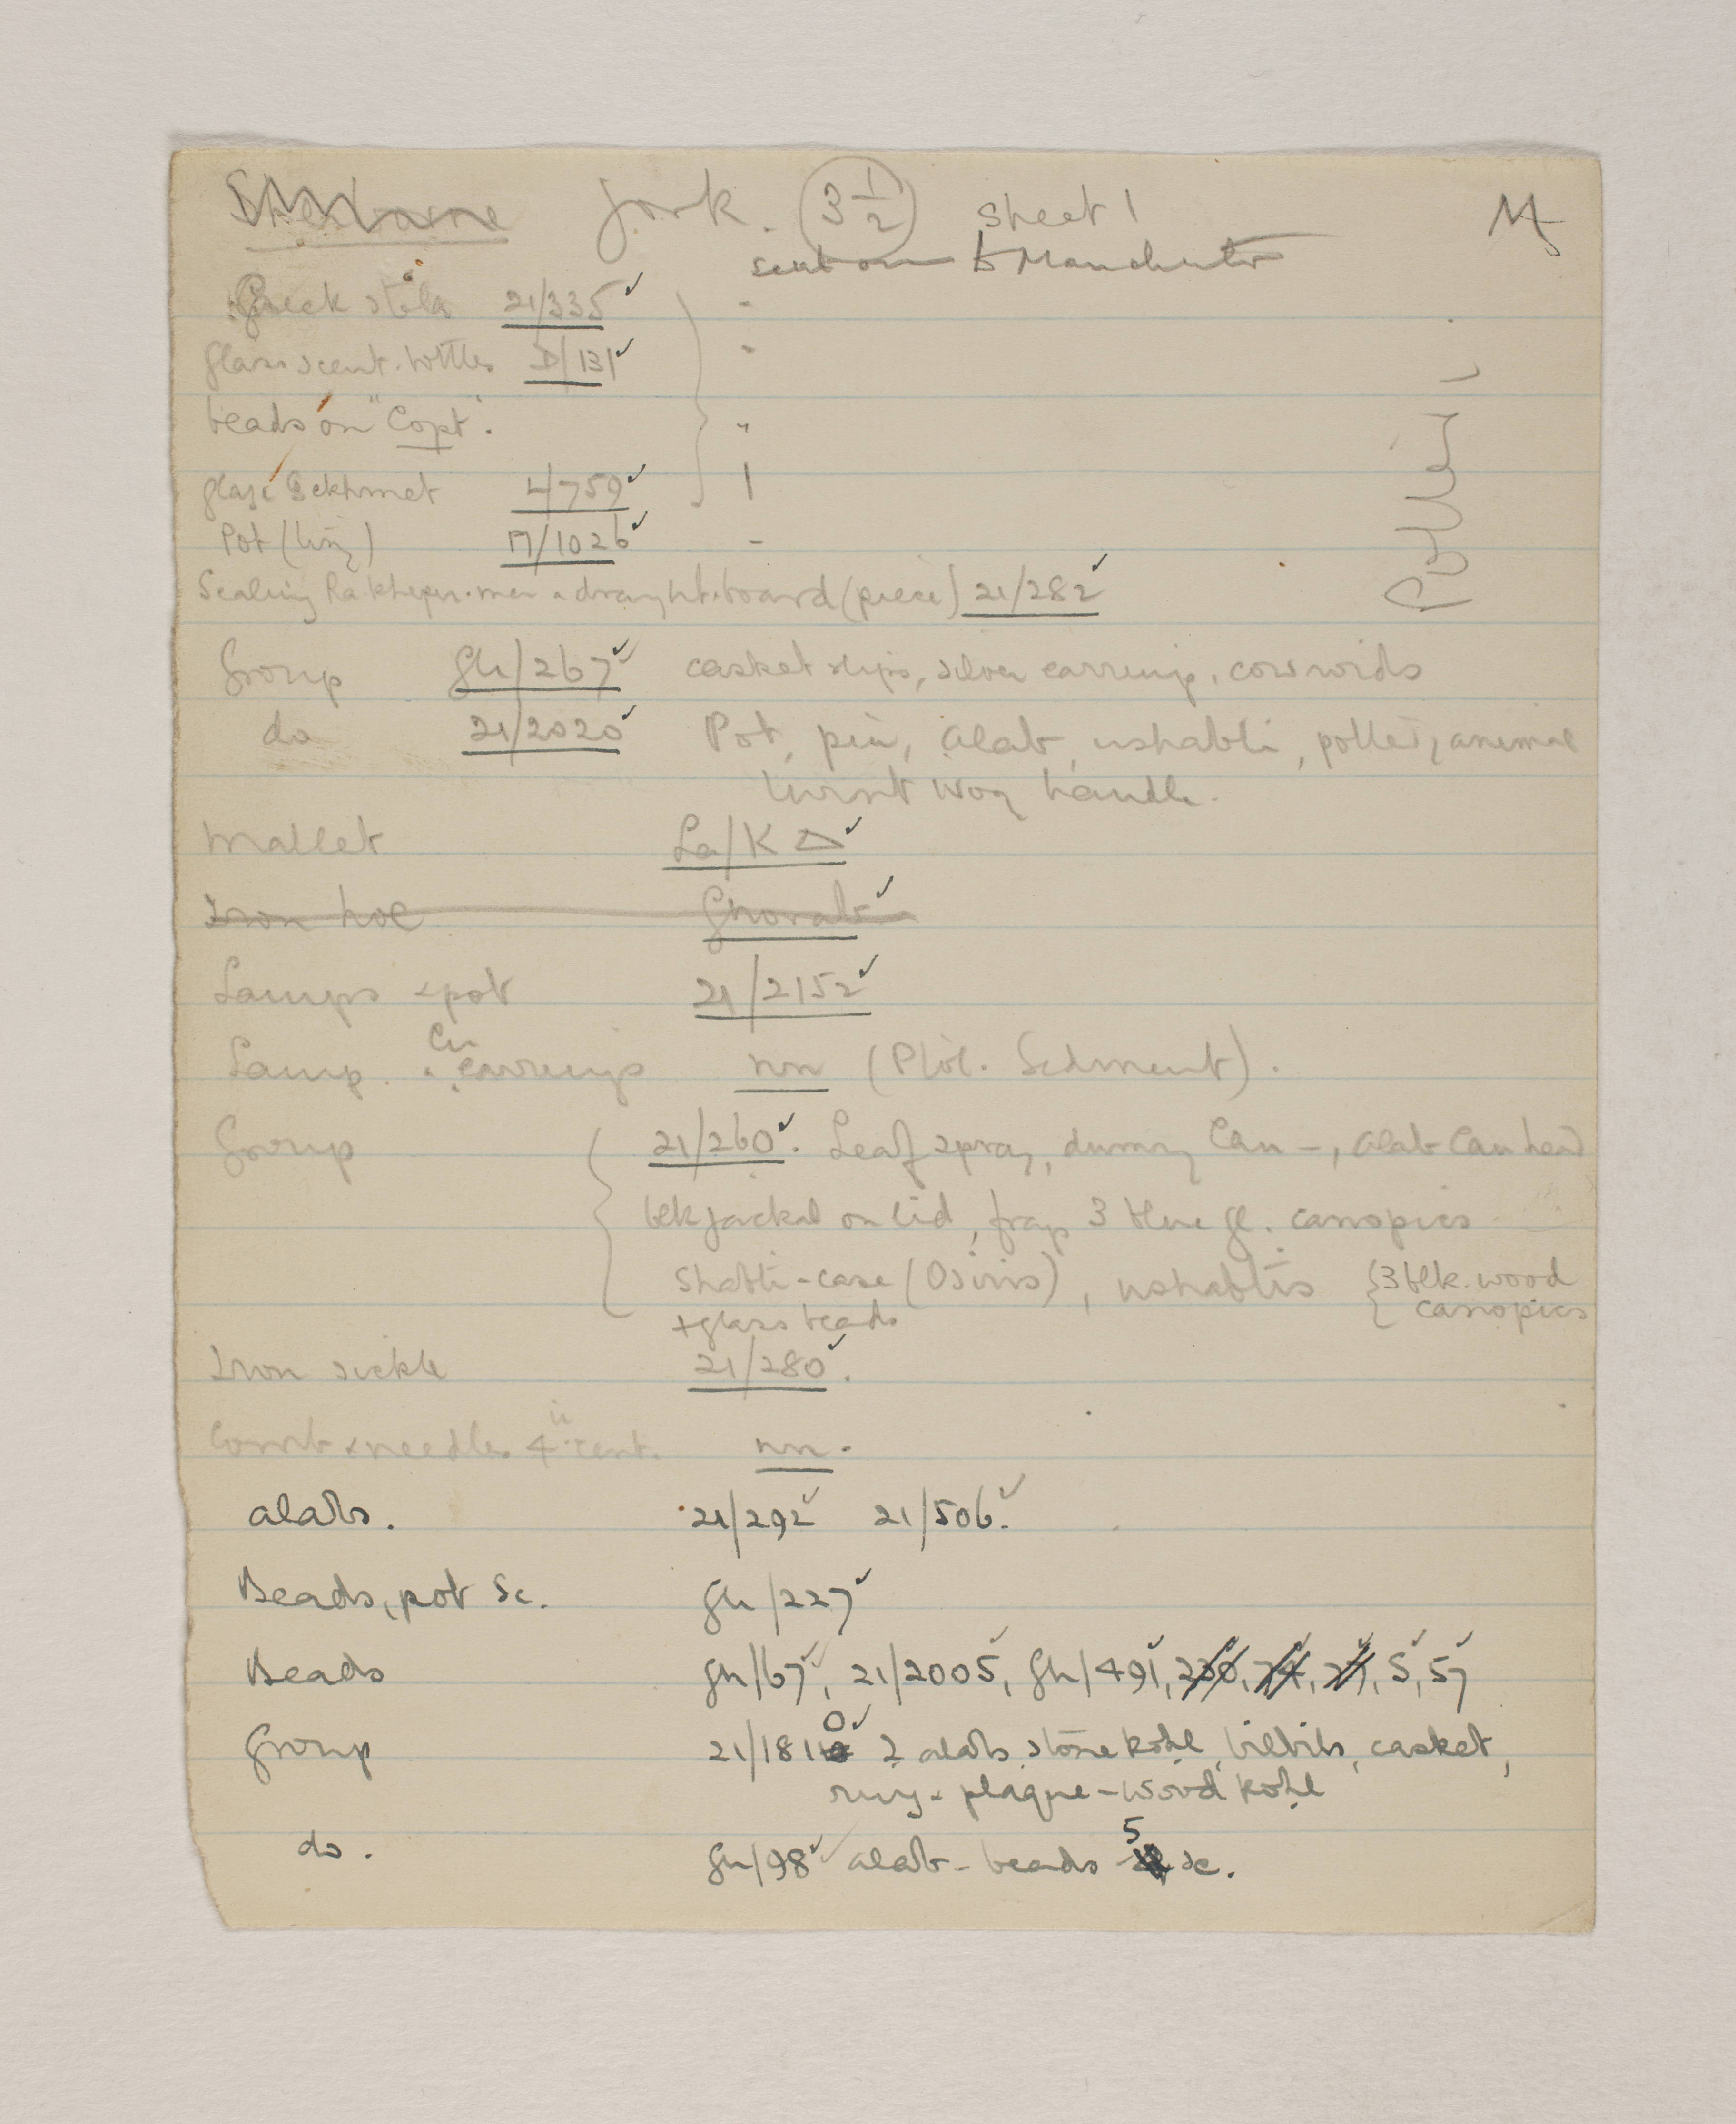 York. 3 1/2 sheet 1 M
sent on to Manchester
Greek stela 21/335
glass scent bottles D/131
beads on "Copt".
glaze Sekhmet 4759
Pot (tiny) 17/1026
Sealing Ra.kheper.men & draught.board (piece) 21/282
Group Gh/267 casket slips, silver earring, cowroids
do 21/2020 Pot, pin, alab, ushabti, pottery animal
burnt ivory handle.
Mallet La/K △
Iron hoe Ghorab
Lamps & pot 21/2152
Lamp. & Cu earrings nn (Ptol. Sedment).
Group 21/260. Leaf spray, dummy Can -, alab Can head
blk jackal on lid, frags 3 blue gl. canopics
Shabti-case (Osiris), ushabtis {3 blk. wood
canopics
+ glass beads
Iron sickle 21/280.
Comb & needles 4th cent. nn.
alabs. 21/292 21/506.
Beads, pot Sc. Gh/227
Beads Gh/67, 21/2005, Gh/491, 5, 57
Group 21/1810 2 alabs stone kohl, bilbils, casket,
ring & plaque - wood kohl
do. Gh/98 alab - beads 5 sc.